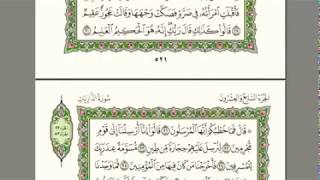 فَأَقْبَلَتِ ٱمْرَأَتُهُۥ فِى صَرَّةٍ فَصَكَّتْ وَجْهَهَا وَقَالَتْ عَجُوزٌ عَقِيمٌ ٢٩
قَالُوا۟ كَذَٰلِكِ قَالَ رَبُّكِ إِنَّهُۥ هُوَ ٱلْحَكِيمُ ٱلْعَلِيمُ ٣٠
٥٢١
الجزء السابع والعشرون سورة الذاريات
قَالَ فَمَا خَطْبُكُمْ أَيُّهَا ٱلْمُرْسَلُونَ ٣١ قَالُوٓا۟ إِنَّآ أُرْسِلْنَآ إِلَىٰ قَوْمٍ
مُّجْرِمِينَ ٣٢ لِنُرْسِلَ عَلَيْهِمْ حِجَارَةً مِّن طِينٍ ٣٣ مُّسَوَّمَةً عِندَ رَبِّكَ
لِلْمُسْرِفِينَ ٣٤ فَأَخْرَجْنَا مَن كَانَ فِيهَا مِنَ ٱلْمُؤْمِنِينَ ٣٥ فَمَا وَجَدْنَا